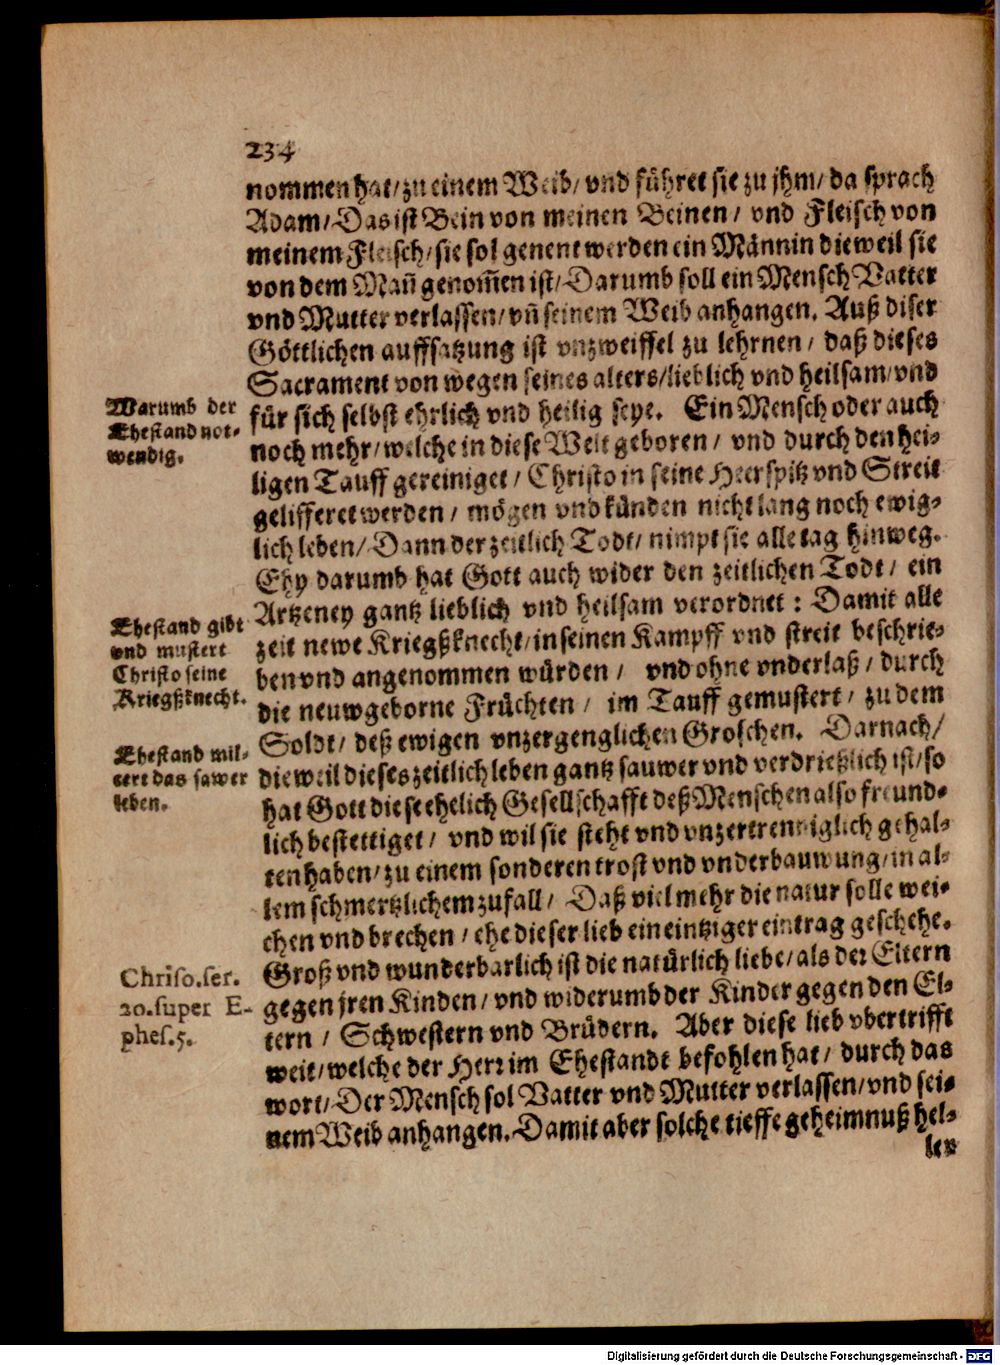 234
nommen hat/ zu einem Weib/ vnd führet sie zu jhm/ da sprach
Adam/ Das ist Bein von meinen Beinen/ vnd Fleisch von
meinem Fleisch/ sie sol genent werden ein Männin dieweil sie
von dem Mañ genom̃en ist/ Darumb soll ein Mensch Vatter
vnd Mutter verlassen/ vñ seinem Weib anhangen. Auß diser
Göttlichen auffsatzung ist vnzweiffel zu lehrnen/ daß dieses
Sacrament von wegen seines alters/ lieblich vnd heilsam/ vnd
Warumb der
Ehestand not-
wendig.
für sich selbst ehrlich vnd heilig seye. Ein Mensch oder auch
noch mehr/ welche in diese Welt geboren/ vnd durch den hei-
ligen Tauff gereiniget/ Christo in seine Heerspitz vnd Streit
gelifferet werden/ mögen vnd künden nicht lang noch ewig-
lich leben/ Dann der zeitlich Todt/ nimpt sie alle tag hinweg.
Ehy darumb hat Gott auch wider den zeitlichen Todt/ ein
Artzeney gantz lieblich vnd heilsam verordnet: Damit alle
Ehestand gibt
vnd mustert
Christo seine
Kriegßknecht.
zeit newe Kriegßknecht/ in seinen Kampff vnd streit beschrie-
ben vnd angenommen würden/ vnd ohne vnderlaß/ durch
die neuwgeborne Früchten/ im Tauff gemustert/ zu dem
Soldt/ deß ewigen vnzergenglichen Groschen. Darnach/
Ehestand mil-
tert das sawer
leben.
dieweil dieses zeitlich leben gantz sauwer vnd verdrießlich ist/ so
hat Gott diese ehelich Gesellschafft deß Menschen also freund-
lich bestettiget/ vnd wil sie steht vnd vnzertrenniglich gehal-
ten haben/ zu einem sonderen trost vnd vnderbauwung/ in al-
lem schmertzlichem zufall/ Daß viel mehr die natur solle wei-
chen vnd brechen/ ehe dieser lieb ein eintziger eintrag geschehe.
Chriso.ser.
20.super E-
phes.5.
Groß vnd wunderbarlich ist die natürlich liebe/ als der Eltern
gegen jren Kinden/ vnd widerumb der Kinder gegen den El-
tern/ Schwestern vnd Brüdern. Aber diese lieb vbertrifft
weit/ welche der Herr im Ehestandt befohlen hat/ durch das
wort/ Der Mensch sol Vatter vnd Mutter verlassen/ vnd sei-
nem Weib anhangen. Damit aber solche tieffe geheimnuß hel-
ler
Digitalisierung gefördert durch die Deutsche Forschungsgemeinschaft - DFG